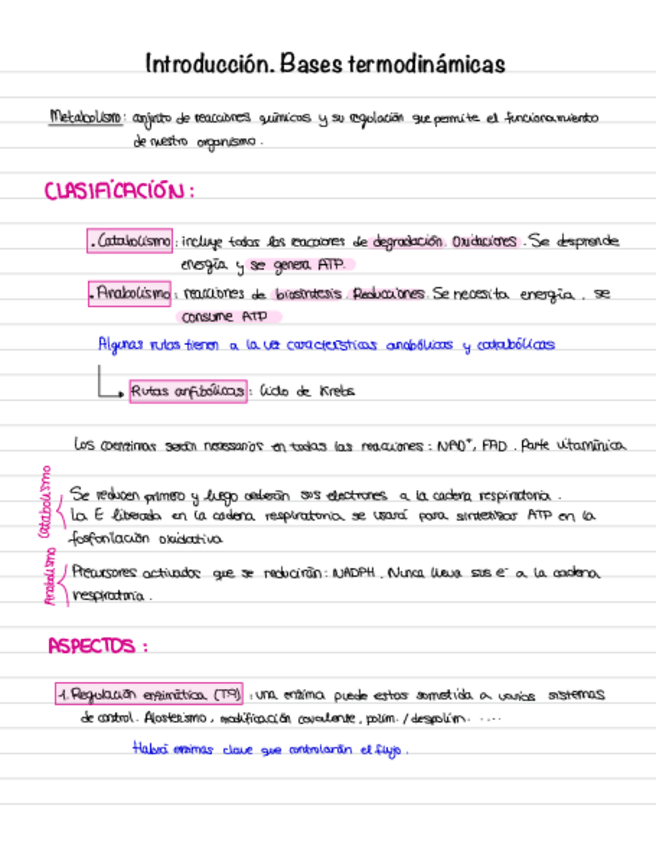 Introducción. Bases termodinámicas
Metabolismo: conjunto de reacciones químicas y su regulación que permite el funcionamiento
de nuestro organismo.
CLASIFICACIÓN:
. Catabolismo: incluye todas las reacciones de degradación. Oxidaciones. Se desprende
energía y se genera ATP.
. Anabolismo: reacciones de biosíntesis. Reducciones. Se necesita energía. se
consume ATP
Algunas rutas tienen a la vez características anabólicas y catabólicas
Rutas anfibólicas: Ciclo de Krebs
Los coenzimas serán necesarios en todas las reacciones: NAD⁺, FAD. Parte vitamínica
Catabolismo
Se reducen primero y luego cederán sus electrones a la cadena respiratoria.
La E liberada en la cadena respiratoria se usará para sintetizar ATP en la
fosforilación oxidativa
Anabolismo
Precursores activados que se reducirán: NADPH. Nunca lleva sus e⁻ a la cadena
respiratoria.
ASPECTOS:
1. Regulación enzimática (T9): una enzima puede estar sometida a varios sistemas
de control. Alosterismo, modificación covalente, polim. / despolim. ....
Habrá enzimas clave que controlarán el flujo.